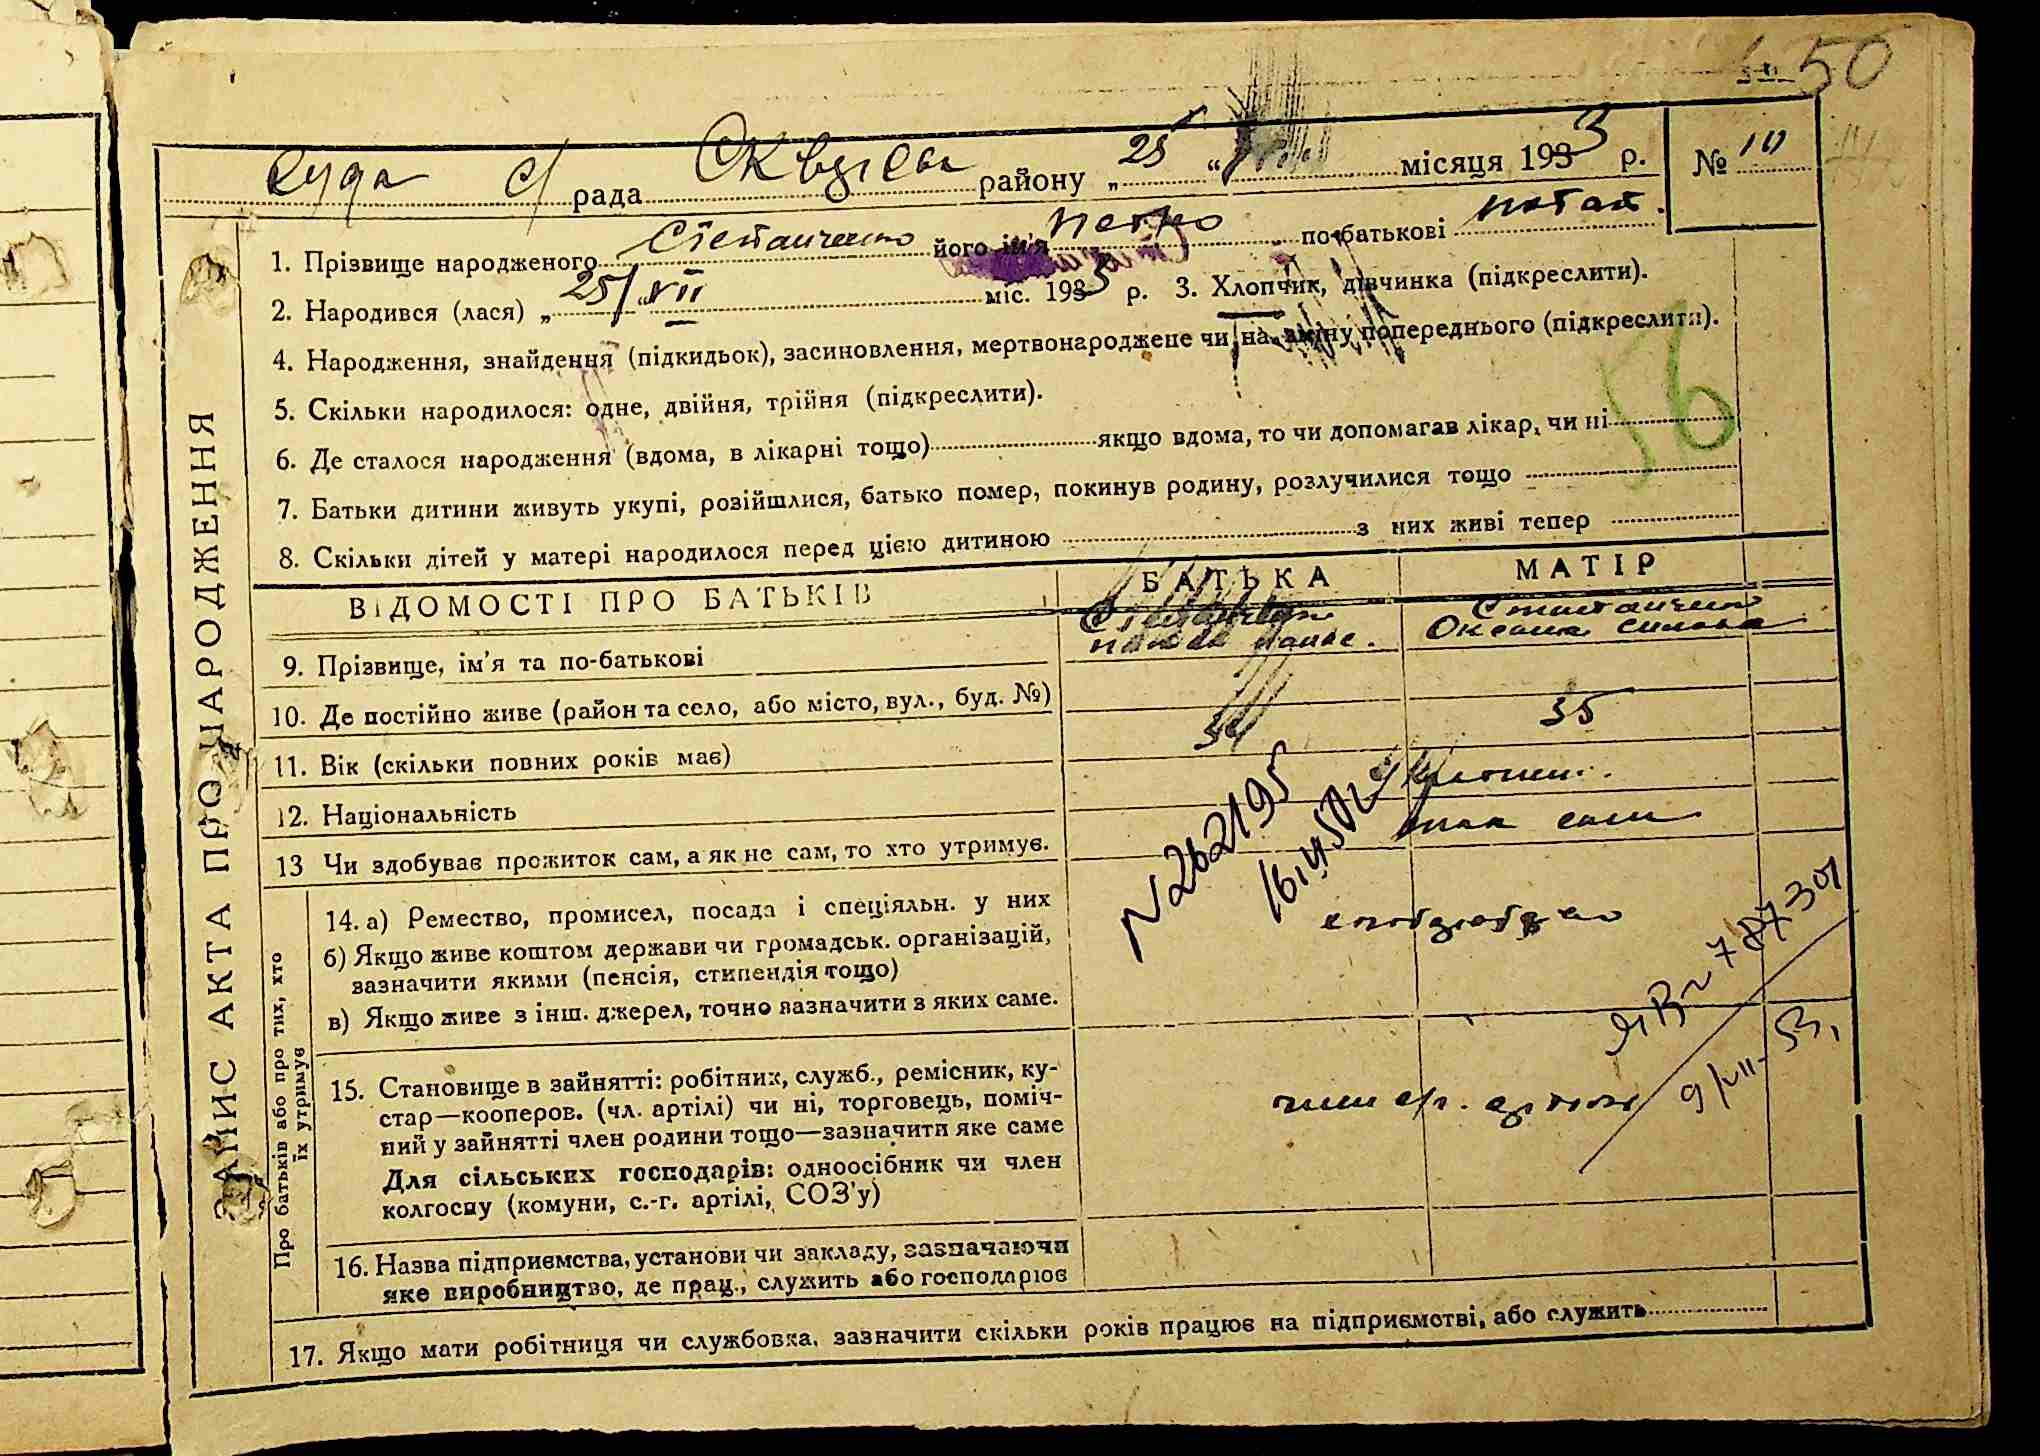 50
Руда с/рада Сквирськ району „ 25 “ місяця 1933 р. № 10
ЗАПИС АКТА ПРО НАРОДЖЕННЯ
1. Прізвище народженого Степанченко його ім'я Петро по батькові
2. Народився (лася) „ 25/ “ VII міс. 1933 р. 3. Хлопчик, дівчинка (підкреслити).
4. Народження, знайдення (підкидьок), засиновлення, мертвонароджене чи на зміну попереднього (підкреслити).
5. Скільки народилося: одне, двійня, трійня (підкреслити).
56
6. Де сталося народження (вдома, в лікарні тощо) якщо вдома, то чи допомагав лікар, чи ні
7. Батьки дитини живуть укупі, розійшлися, батько помер, покинув родину, розлучилися тощо
8. Скільки дітей у матері народилося перед цією дитиною з них живі тепер
ВІДОМОСТІ ПРО БАТЬКІВ
БАТЬКА
МАТІР
9. Прізвище, ім'я та по-батькові
Степанченко
Степанченко
Оксана
10. Де постійно живе (район та село, або місто, вул., буд. №)
11. Вік (скільки повних років має) 34 35
12. Національність
13 Чи здобуває прожиток сам, а як не сам, то хто утримує.
Про батьків або про тих, хто
їх утримує
14. а) Ремество, промисел, посада і спеціяльн. у них
б) Якщо живе коштом держави чи громадськ. організацій,
зазначити якими (пенсія, стипендія тощо)
в) Якщо живе з інш. джерел, точно зазначити з яких саме.
N262195
787301
9/VII-53,
15. Становище в зайнятті: робітник, служб., ремісник, ку-
стар—кооперов. (чл. артілі) чи ні, торговець, поміч-
ний у зайнятті член родини тощо—зазначити яке саме
Для сільських господарів: одноосібник чи член
колгоспу (комуни, с.-г. артілі, СОЗ'у)
член с/г. артілі
16. Назва підприємства, установи чи закладу, зазначаючи
яке виробництво, де прац., служить або господарює
17. Якщо мати робітниця чи службовка, зазначити скільки років працює на підприємстві, або служить